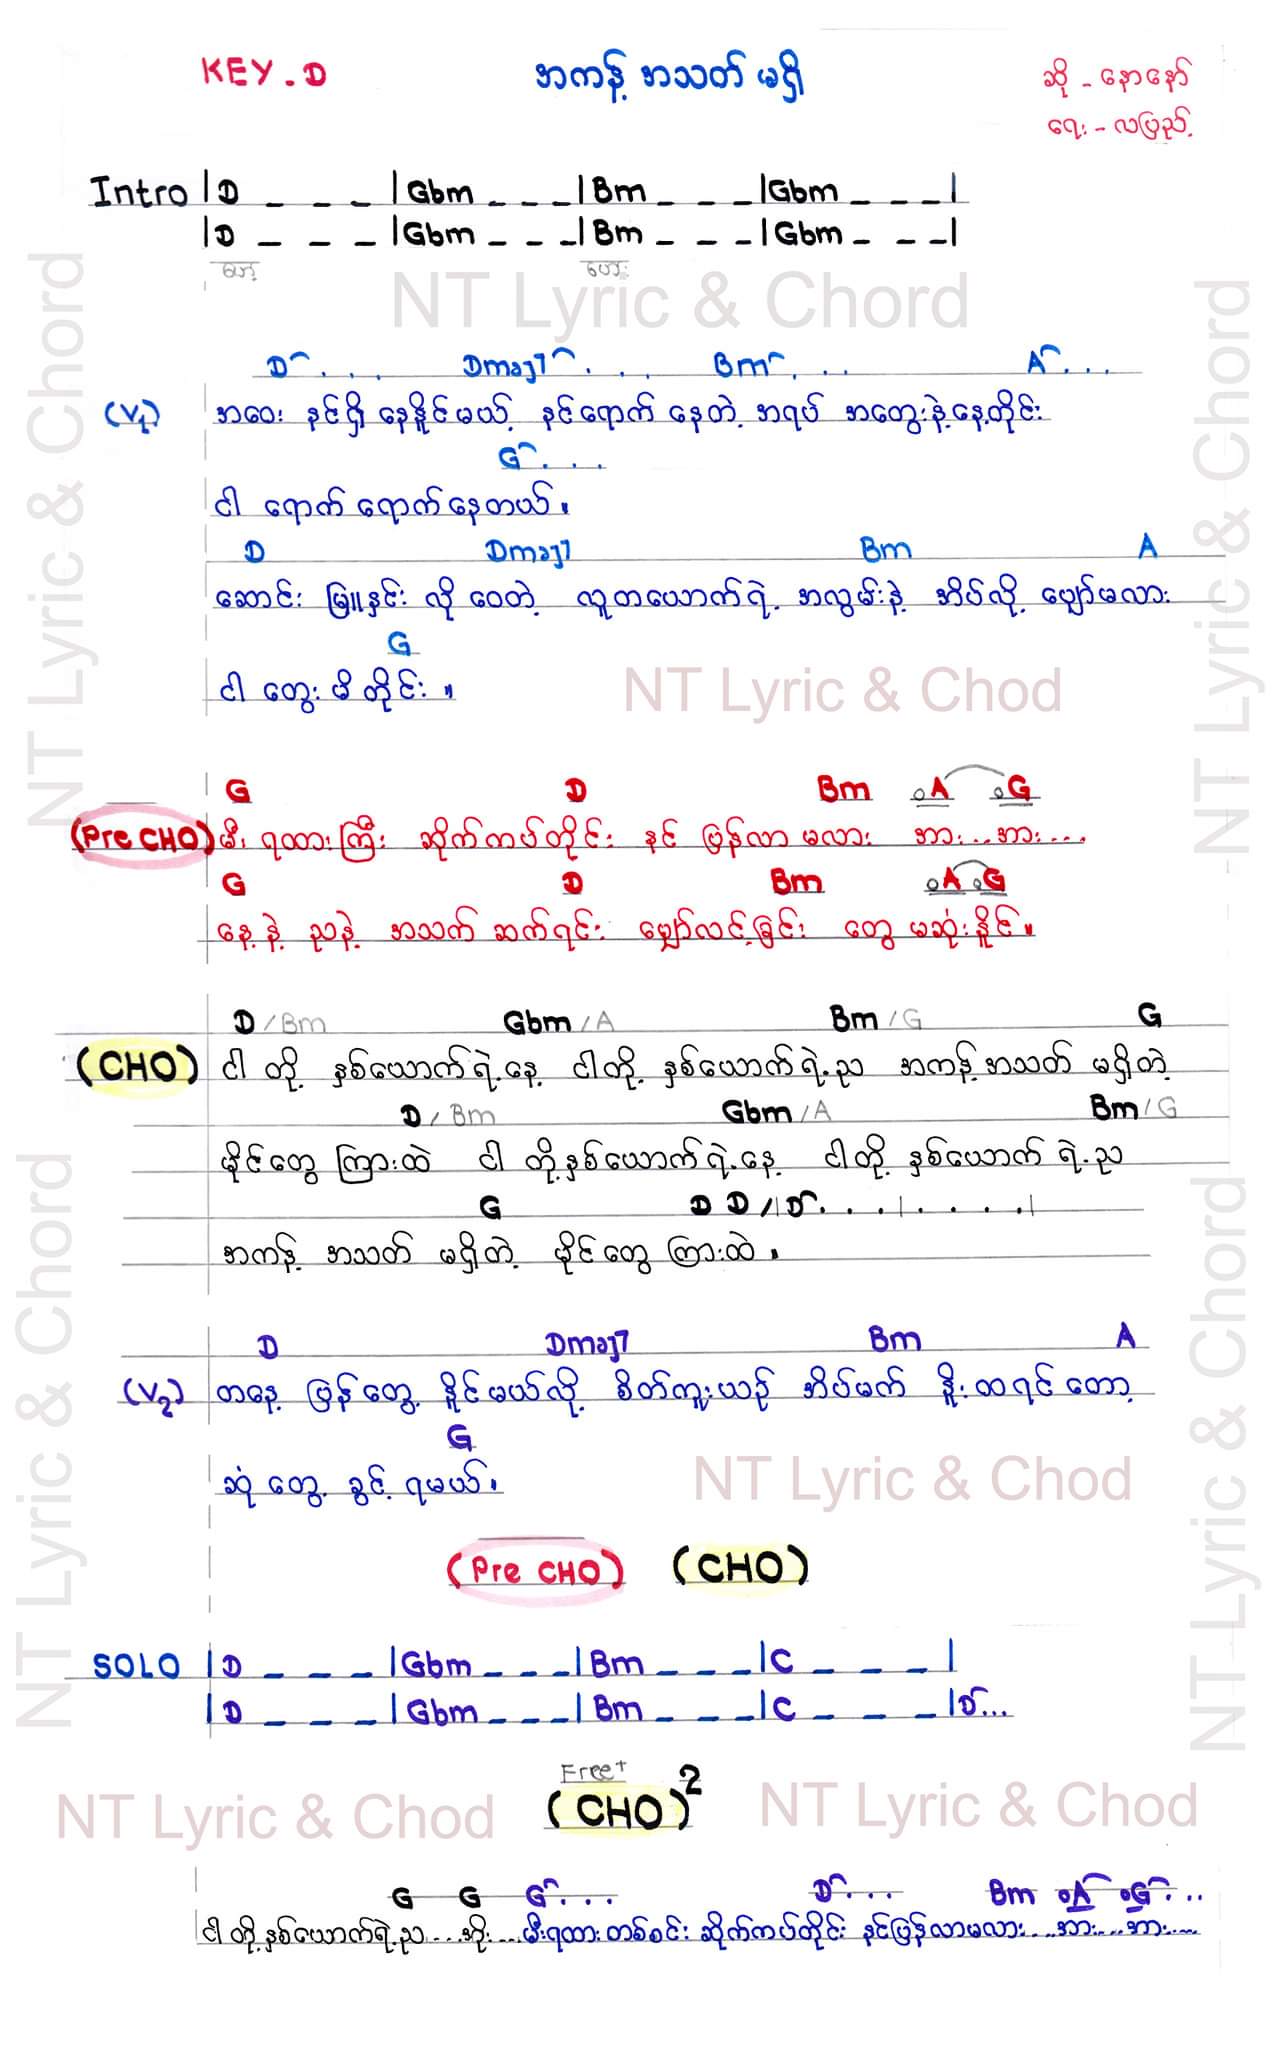 KEY.D
အကန့် အသတ် မရှိ
ဆို - နောနော်
ရေး - လပြည့်
Intro |D _ _ _ |Gbm _ _ _ |Bm _ _ _ |Gbm _ _ _ |
|D _ _ _ |Gbm _ _ _ |Bm _ _ _ |Gbm _ _ _ |
ဟေ့ ဟေး
NT Lyric & Chord
D . . . Dmaj7 . . . Bm . . . A . . .
(V1) အဝေး နင်ရှိ နေနိူင်မယ့် နင်ရောက် နေတဲ့ အရပ် အတွေးနဲ့နေ့တိုင်း
G . . .
ငါ ရောက် ရောက်နေတယ်။
D Dmaj7 Bm A
ဆောင်း မြူနှင်း လို ဝေတဲ့ လူတယောက်ရဲ့ အလွမ်းနဲ့ အိပ်လို့ ပျော်မလား
G
ငါ တွေး မိ တိုင်း ။
NT Lyric & Chod
G D Bm A G
(Pre CHO) မီး ရထားကြီး ဆိုက်ကပ်တိုင်း နင် ပြန်လာ မလား အား...အား....
G D Bm A G
နေ့နဲ့ ညနဲ့ အသက် ဆက်ရင်း မျှော်လင့်ခြင်း တွေ မဆုံးနိူင်။
D/Bm Gbm/A Bm/G G
(CHO) ငါ တို့ နှစ်ယောက်ရဲ့နေ့ ငါတို့ နှစ်ယောက်ရဲ့ည အကန့်အသတ် မရှိတဲ့
D/Bm Gbm/A Bm/G
မိုင်တွေ ကြားထဲ ငါ တို့နှစ်ယောက်ရဲ့နေ့ ငါတို့ နှစ်ယောက် ရဲ့ည
G D D / D . . . . | . . . . |
အကန့် အသတ် မရှိတဲ့ မိုင်တွေ ကြားထဲ ။
D Dmaj7 Bm A
(V2) တနေ့ ပြန်တွေ့ နိူင်မယ်လို့ စိတ်ကူးယဉ် အိပ်မက် နိူးထရင် တော့
G
ဆုံ တွေ့ ခွင့် ရမယ်။
NT Lyric & Chod
(Pre CHO) (CHO)
SOLO |D _ _ _ |Gbm _ _ _ |Bm _ _ _ |C _ _ _ |
|D _ _ _ |Gbm _ _ _ |Bm _ _ _ |C _ _ _ |D...
Free+
(CHO)2
NT Lyric & Chod
NT Lyric & Chod
G G G . . . D . . . Bm A G . . .
ငါတို့နှစ်ယောက်ရဲ့ည ....အိုး....မီးရထားတစ်စင်း ဆိုက်ကပ်တိုင်း နင်ပြန်လာမလား....အား....အား....
NT Lyric & Chord
NT Lyric & Chord
NT Lyric & Chord
NT Lyric & Chord